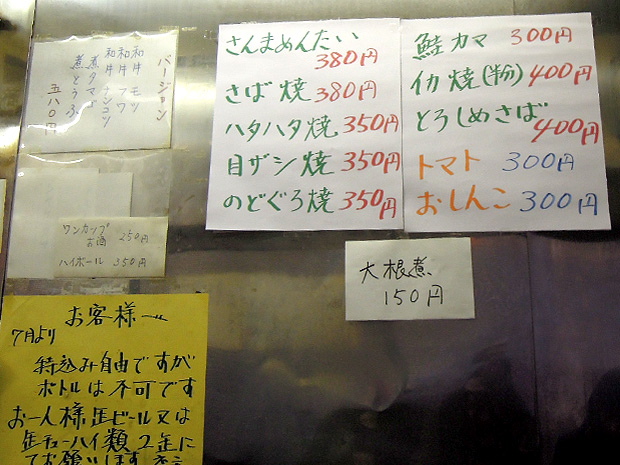 バージョン
和牛モツ
和牛フワ
和牛ナンコツ
煮タマゴ
煮とうふ
五八〇円
ワンカップ
お酒 250円
ハイボール 350円
さんまめんたい
380円
さば焼 380円
ハタハタ焼 350円
目ザシ焼 350円
のどぐろ焼 350円
鮭カマ 300円
イカ焼(粉) 400円
とろしめさば
400円
トマト 300円
おしんこ 300円
大根煮
150円
お客様へ
7月より
持込み自由ですが
ボトルは不可です
お一人様缶ビール又は
缶チューハイ類2缶に
てお願いします